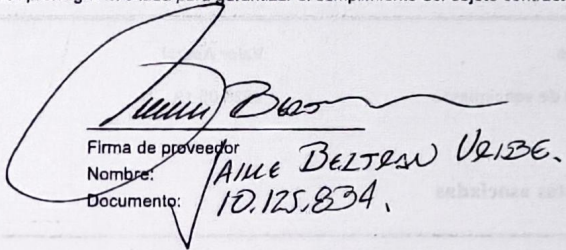 para garantizar el cumplimiento del objeto contrac
Firma de proveedor
Nombre: JAIME BELTRAN URIBE.
Documento: 10.125.834.